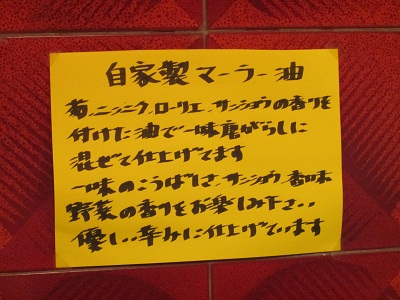 自家製マーラー油
菊、ニンニク、ローリエ、サンショウの香りを
付けた油で一味唐がらしに
混ぜて仕上げてます
一味のこうばしさ、サンショウ、香味
野菜の香りをお楽しみ下さい、
優しい辛みに仕上げています